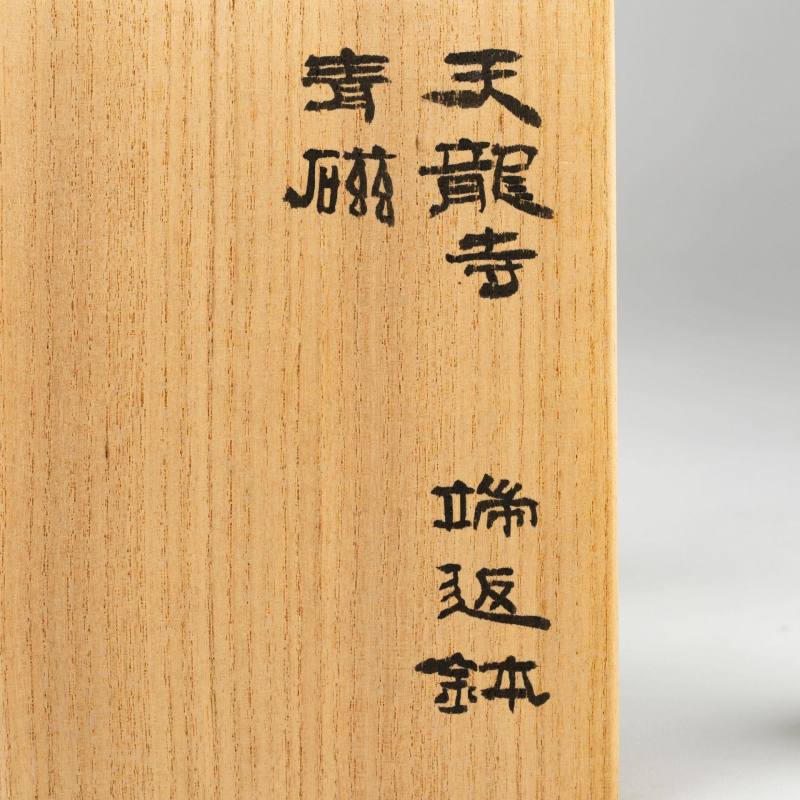 天龍寺　端返鉢
青磁